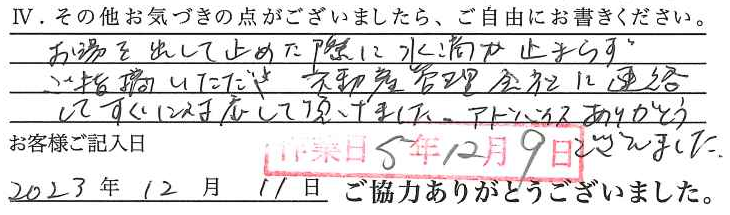 Ⅳ.その他お気づきの点がございましたら、ご自由にお書きください。
お湯を出して止めた際に水滴が止まらず
ご指摘いただき 不動産管理会社に連絡
してすぐに対応して頂けました。アドバイスありがとう
ございました。
お客様ご記入日
作業日 5年12月9日
2023年 12月 11日 ご協力ありがとうございました。